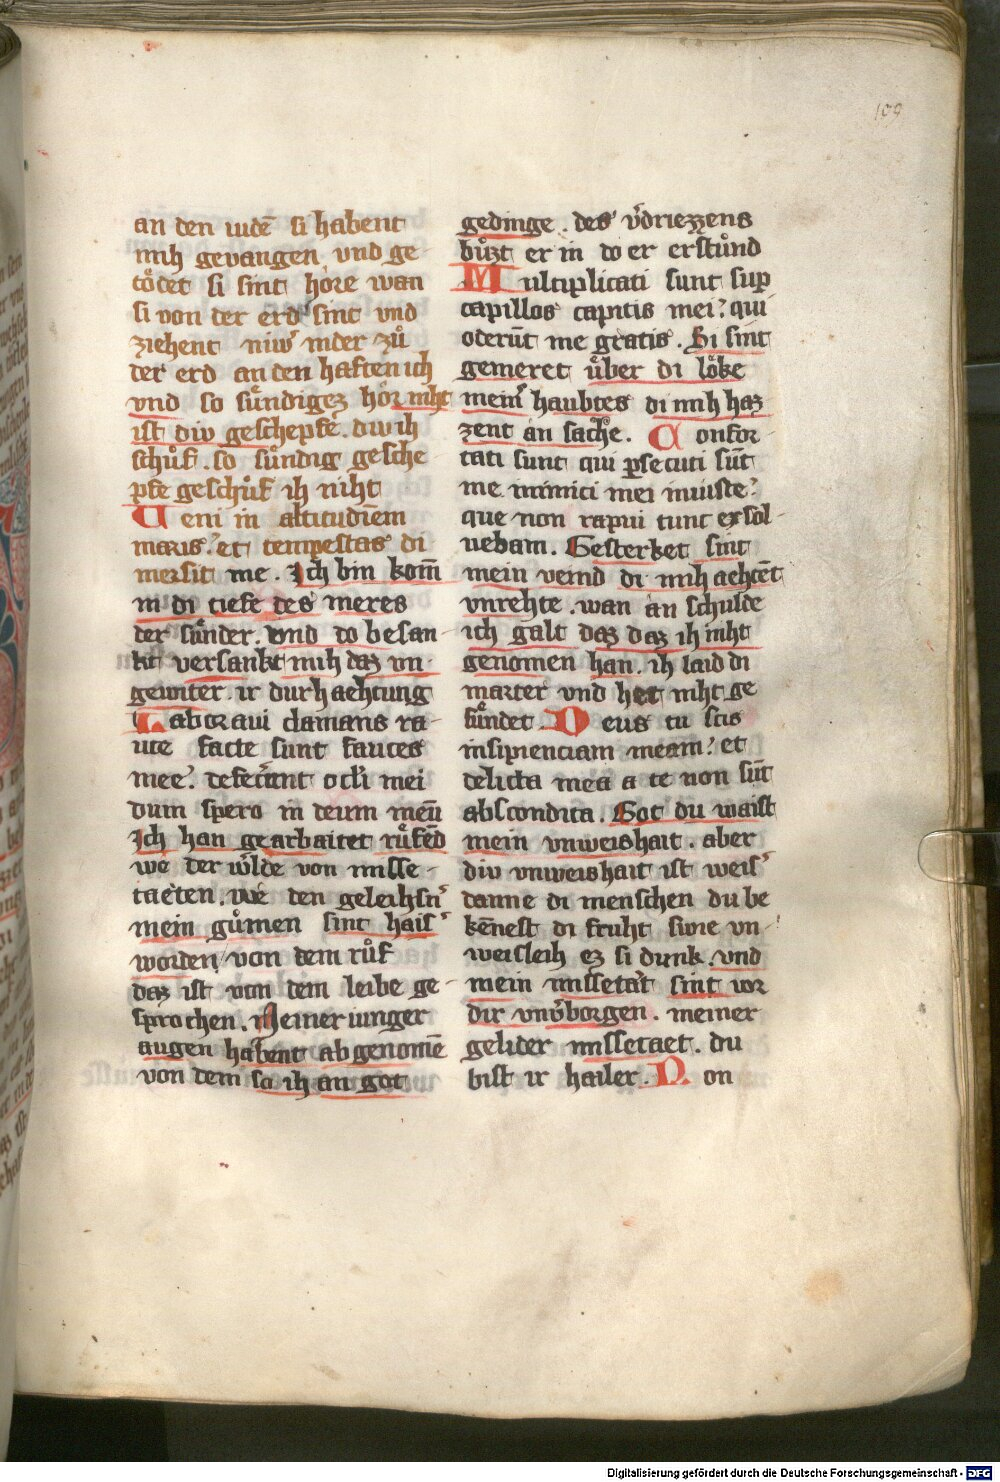 109
an den iudē si habent
mih gevangen vnd ge
tőtet si sint hore wan
si von der erd sint vnd
ziehent niwͥ nider zů
der erd an den haften ich
vnd so sůndigez hör niht
ist div geschepfe. div ih
schůf. so sůndig gesche
pfe geschůf ih niht
Veni in altitudinem
maris. et tempestas di
mersit me. Ich bin kom̄
in di tiefe des meres
der sůnder. vnd do besan-
kt versankt mih daz vn-
gewiter. ir durhaehtung
Laboraui clamans ra-
uce facte sunt fauces
mee. defecerunt ocl'i mei
dum spero in deum meū
Ich han gearbaitet růfēd
we der wilde von misse-
taeten. we den geleihsn̄
mein gůmen sint hais'
worden von dem růf
daz ist von dem leibe ge-
sprochen. Meiner iunger
augen habent abgenomē
von dem so ih an got
gedinge. des v'driezzens
bůzt er in do er erstůnd
Multiplicati sunt sup
capillos capitis mei. qui
oderūt me gratis. Si sint
gemeret ůber di lőke
mein' haubtes di mih haz
zent an sache. Confor
tati sunt qui p̱secuti sūt
me inimici mei iniuste.
que non rapui tunc exsol-
uebam. Gesterket sint
mein veind di mih aehtēt
vnrehte. wan an schulde
ich galt daz daz ih niht
genomen han. ih laid di
marter vnd het niht ge
sůndet Deus tu scis
insipienciam meam. et
delicta mea a te non sūt
abscondita. Got du waist
mein vnweishait. aber
div vnweishait ist weis'
danne di menschen du be
kēnest di fruht swie vn-
weisleih ez si dunk. vnd
mein missetat sint vor
dir vnv'borgen. meiner
gelider missetaet. du
bist ir hailer. Non
Digitalisierung gefördert durch die Deutsche Forschungsgemeinschaft - DFG